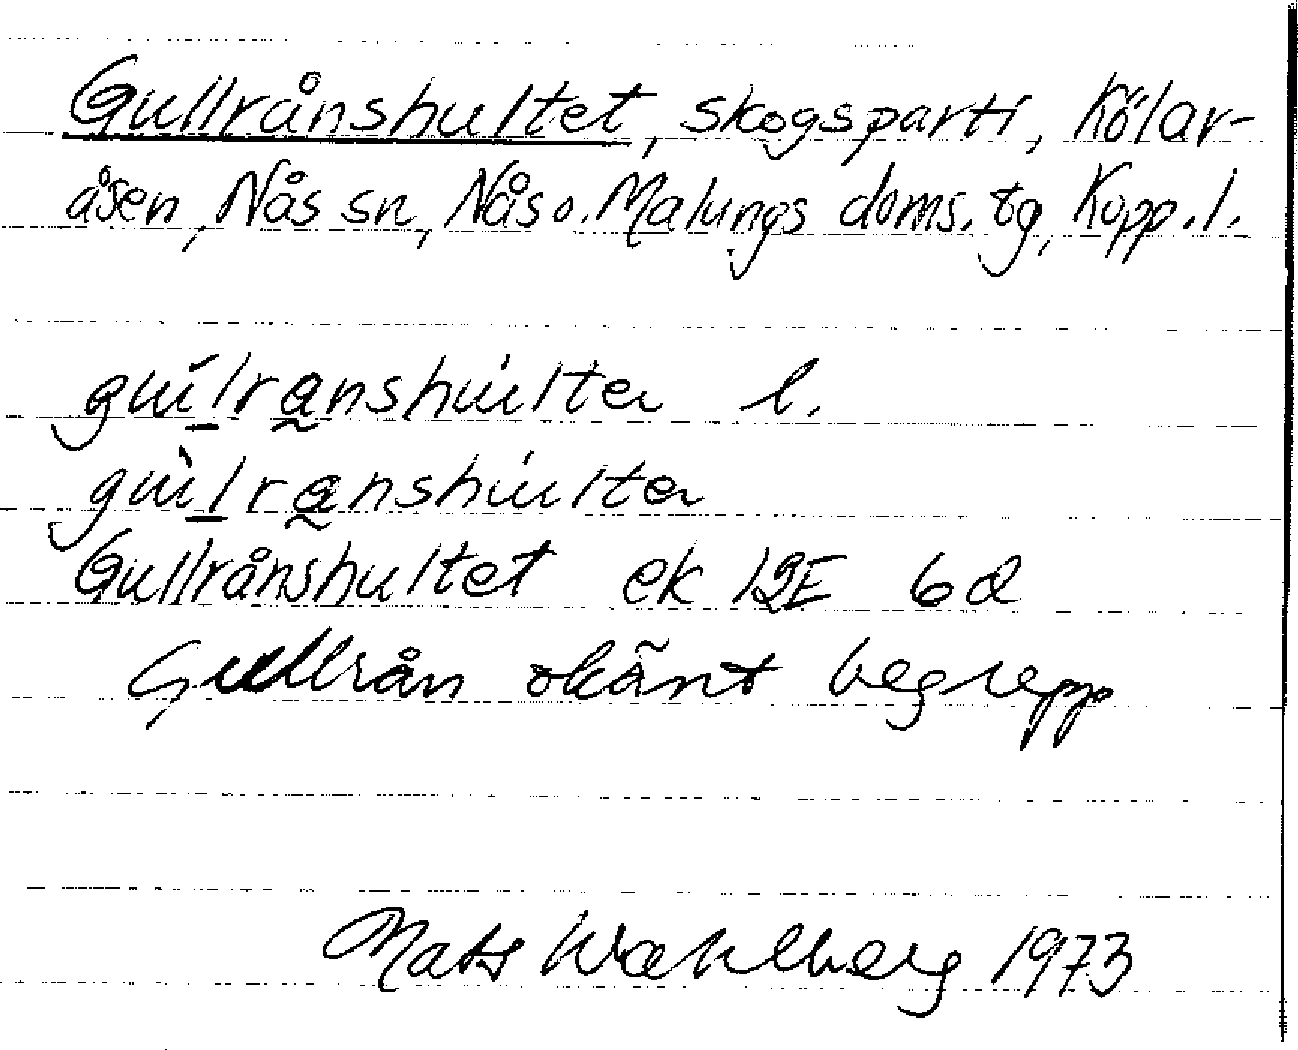 Gullrånshultet, skogsparti, Kölar-
åsen, Nås sn, Nås o. Malungs doms. tg, Kopp. l.
l.
Gullrånshultet ek 12E 6d
Gullrån okänt begrepp
Mats Wahlberg 1973